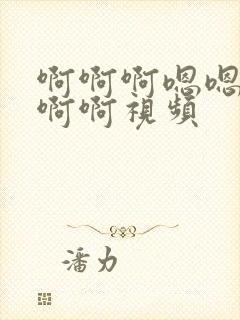 啊啊啊嗯嗯
啊啊視頻
潘力